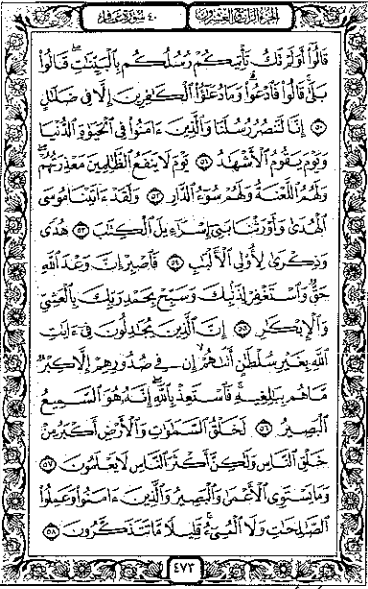 الجزء الرابع والعشرون
سورة غافر ٤٠
قَالُوٓا۟ أَوَلَمْ تَكُ تَأْتِيكُمْ رُسُلُكُم بِٱلْبَيِّنَٰتِ ۖ قَالُوا۟
بَلَىٰ ۚ قَالُوا۟ فَٱدْعُوا۟ ۗ وَمَا دُعَٰٓؤُا۟ ٱلْكَٰفِرِينَ إِلَّا فِى ضَلَٰلٍ
﴿٥٠﴾ إِنَّا لَنَنصُرُ رُسُلَنَا وَٱلَّذِينَ ءَامَنُوا۟ فِى ٱلْحَيَوٰةِ ٱلدُّنْيَا
وَيَوْمَ يَقُومُ ٱلْأَشْهَٰدُ ﴿٥١﴾ يَوْمَ لَا يَنفَعُ ٱلظَّٰلِمِينَ مَعْذِرَتُهُمْ ۖ
وَلَهُمُ ٱللَّعْنَةُ وَلَهُمْ سُوٓءُ ٱلدَّارِ ﴿٥٢﴾ وَلَقَدْ ءَاتَيْنَا مُوسَى
ٱلْهُدَىٰ وَأَوْرَثْنَا بَنِىٓ إِسْرَٰٓءِيلَ ٱلْكِتَٰبَ ﴿٥٣﴾ هُدًى
وَذِكْرَىٰ لِأُو۟لِى ٱلْأَلْبَٰبِ ﴿٥٤﴾ فَٱصْبِرْ إِنَّ وَعْدَ ٱللَّهِ
حَقٌّ وَٱسْتَغْفِرْ لِذَنۢبِكَ وَسَبِّحْ بِحَمْدِ رَبِّكَ بِٱلْعَشِىِّ
وَٱلْإِبْكَٰرِ ﴿٥٥﴾ إِنَّ ٱلَّذِينَ يُجَٰدِلُونَ فِىٓ ءَايَٰتِ
ٱللَّهِ بِغَيْرِ سُلْطَٰنٍ أَتَىٰهُمْ ۙ إِن فِى صُدُورِهِمْ إِلَّا كِبْرٌ
مَّا هُم بِبَٰلِغِيهِ ۚ فَٱسْتَعِذْ بِٱللَّهِ ۖ إِنَّهُۥ هُوَ ٱلسَّمِيعُ
ٱلْبَصِيرُ ﴿٥٦﴾ لَخَلْقُ ٱلسَّمَٰوَٰتِ وَٱلْأَرْضِ أَكْبَرُ مِنْ
خَلْقِ ٱلنَّاسِ وَلَٰكِنَّ أَكْثَرَ ٱلنَّاسِ لَا يَعْلَمُونَ ﴿٥٧﴾
وَمَا يَسْتَوِى ٱلْأَعْمَىٰ وَٱلْبَصِيرُ وَٱلَّذِينَ ءَامَنُوا۟ وَعَمِلُوا۟
ٱلصَّٰلِحَٰتِ وَلَا ٱلْمُسِىٓءُ ۚ قَلِيلًا مَّا تَتَذَكَّرُونَ ﴿٥٨﴾
٤٧٣